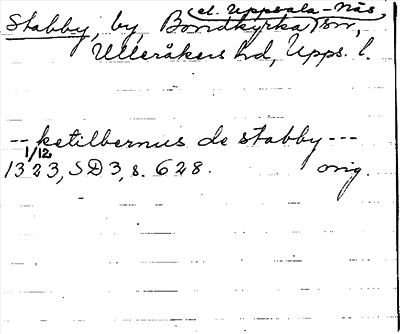 (el. Uppsala-Näs)
Stabby, by, Bondkyrka sn,
Ulleråkers hd, Upps. l.
-- ketilbernus de stabby ---
1/12
1323, SD 3, s. 628. orig.